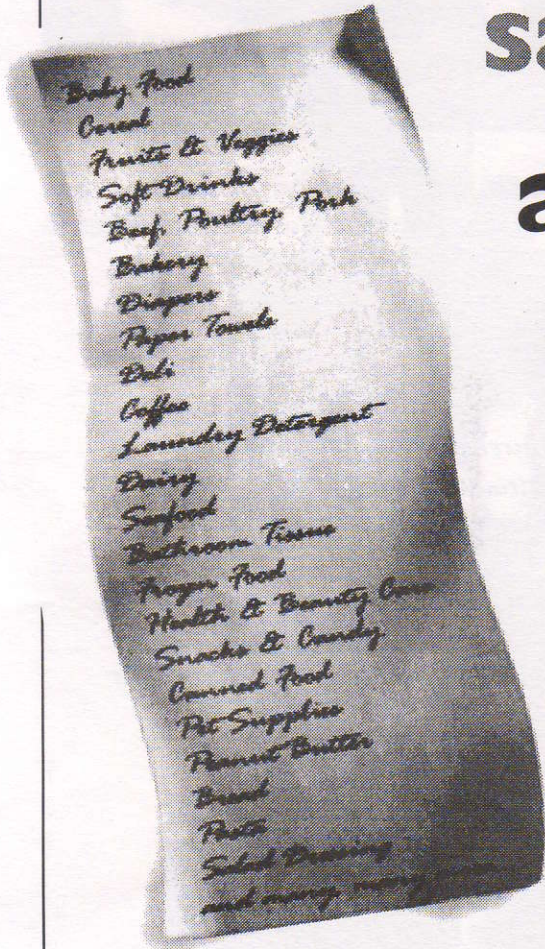 sa
a
Baby Food
Cereal
Fruits & Veggies
Soft Drinks
Beef, Poultry, Pork
Bakery
Diapers
Paper Towels
Deli
Coffee
Laundry Detergent
Dairy
Seafood
Bathroom Tissue
Frozen Food
Health & Beauty Care
Snacks & Candy
Canned Food
Pet Supplies
Peanut Butter
Bread
Pasta
Salad Dressing
and many, many more